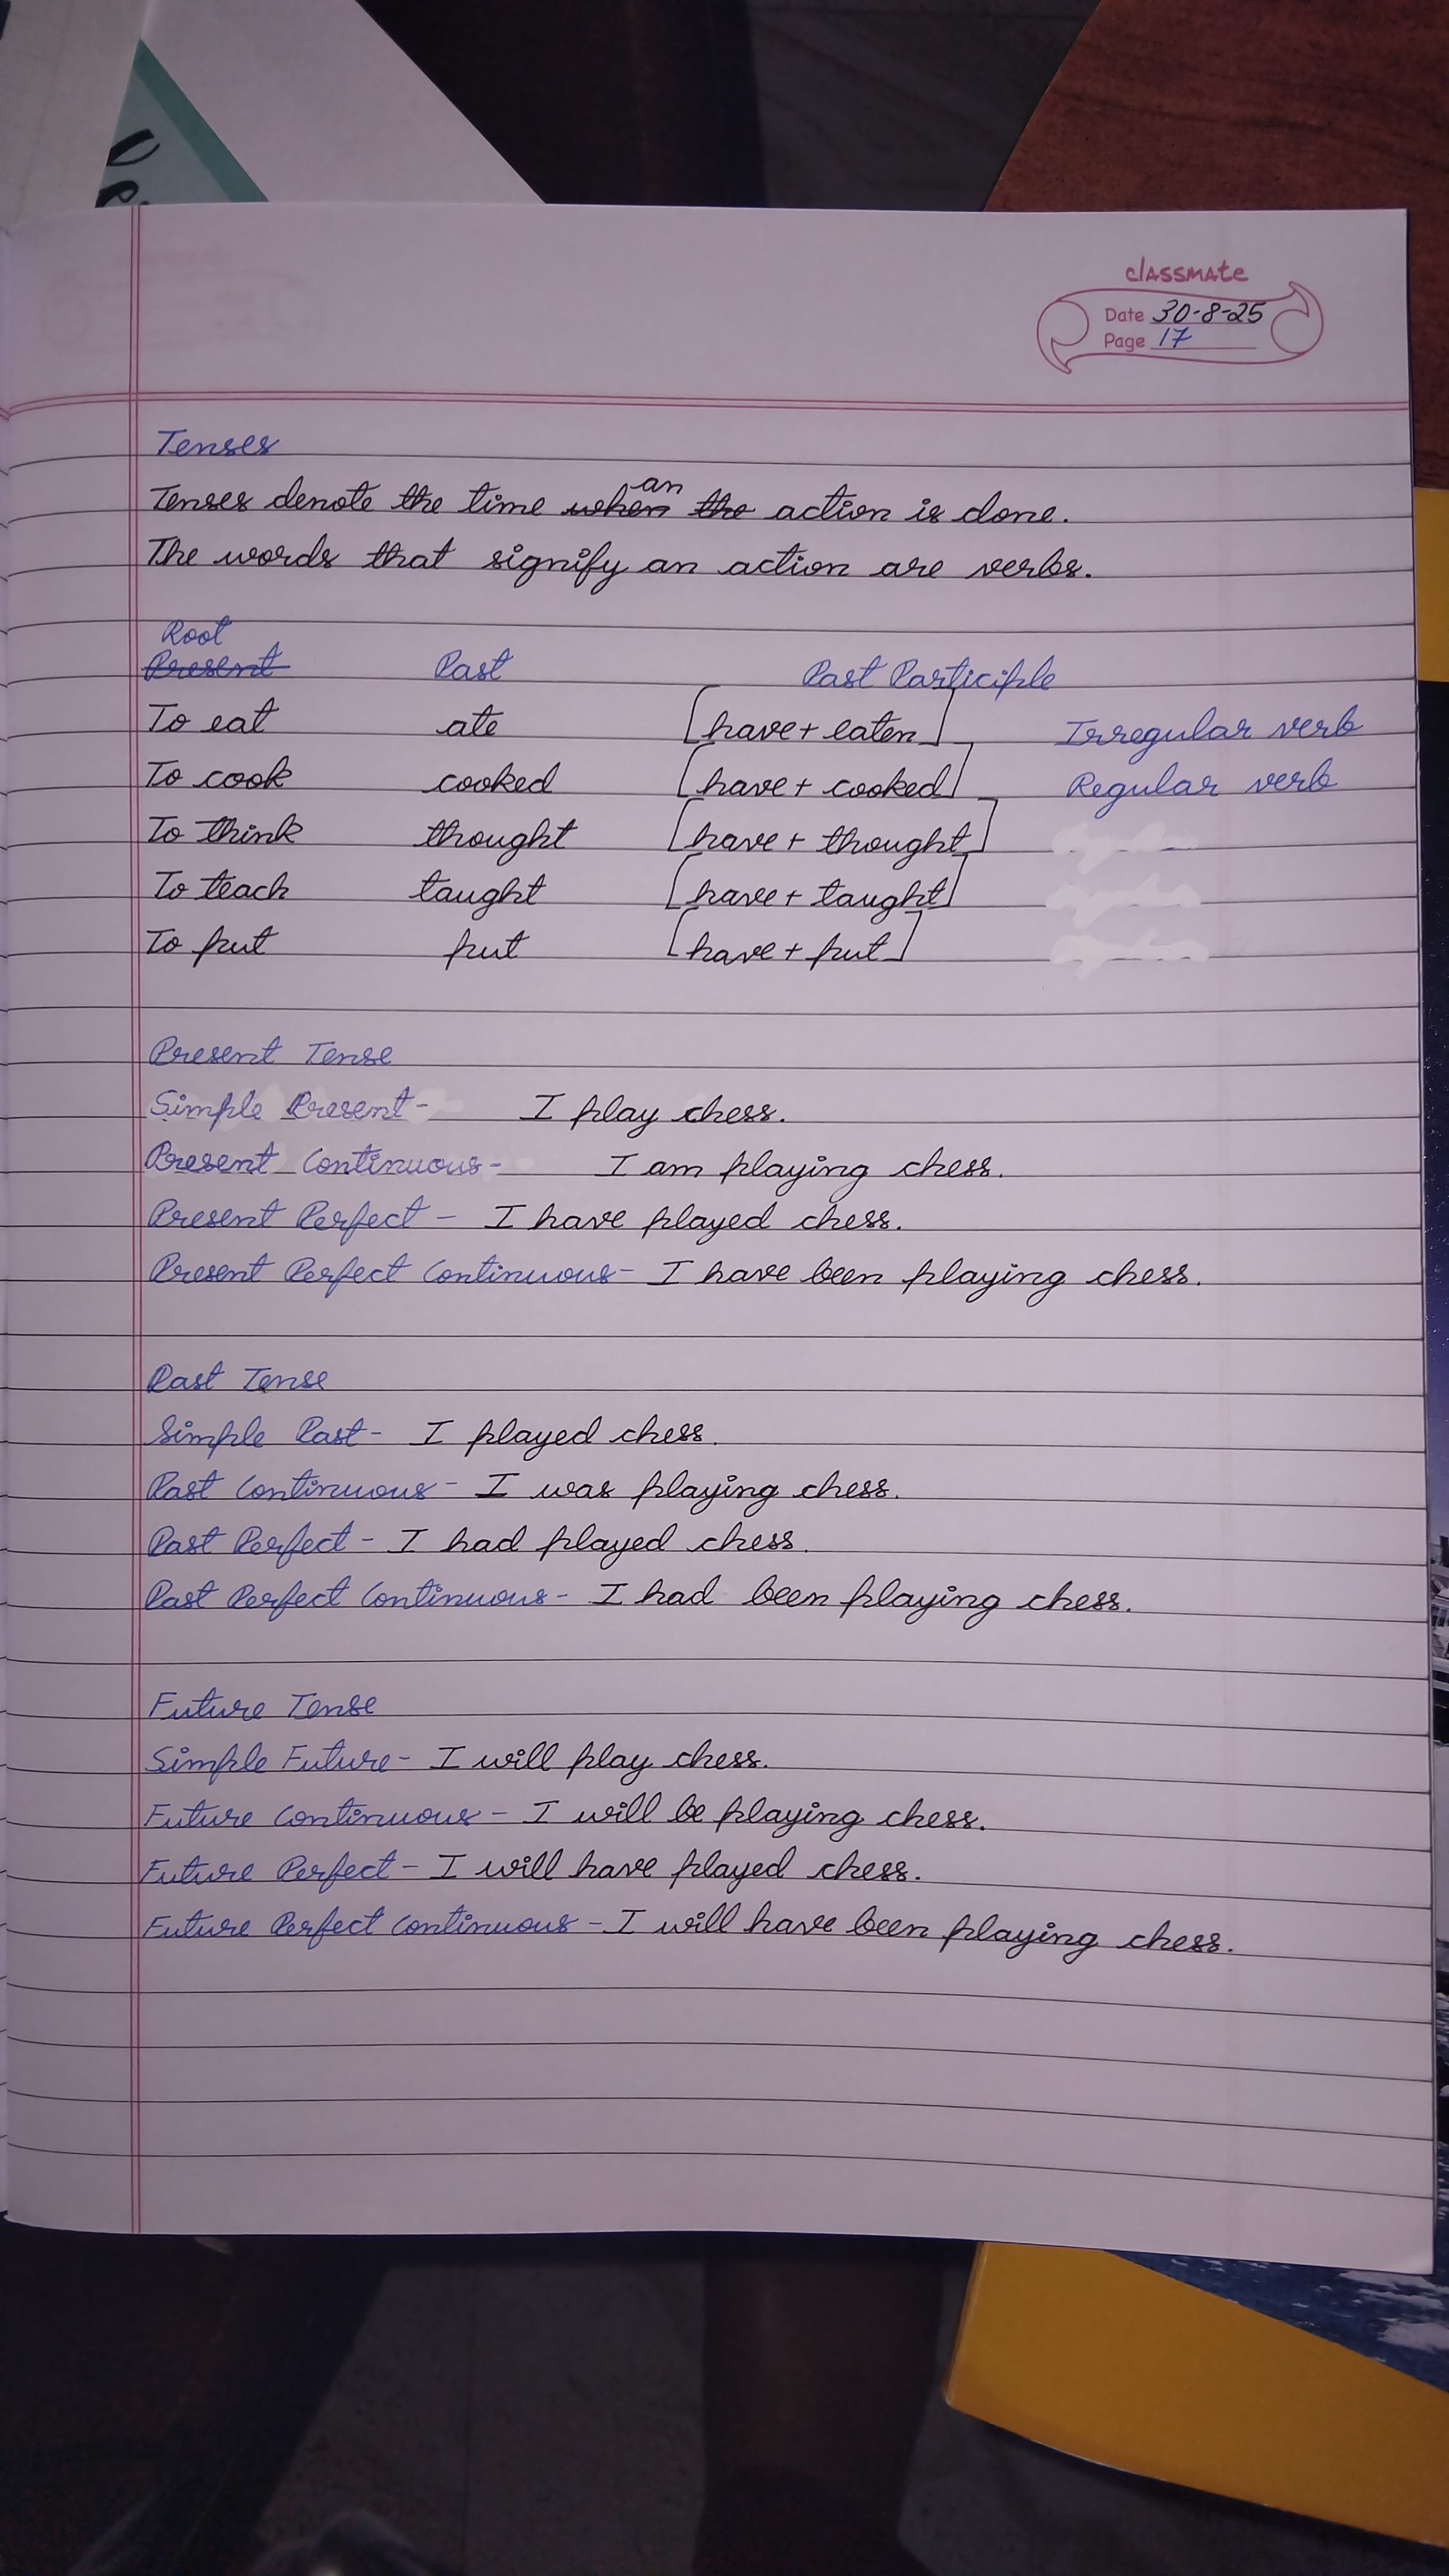 classmate
Date 30-8-25
Page 17
Tenses
an
Tenses denote the time when the action is done.
The words that signify an action are verbs.
Root
Present Past Past Participle
To eat ate [have + eaten] Irregular verb
To cook cooked [have + cooked] Regular verb
To think thought [have + thought]
To teach taught [have + taught]
To put put [have + put]
Present Tense
Simple Present- I play chess.
Present Continuous- I am playing chess.
Present Perfect - I have played chess.
Present Perfect Continuous- I have been playing chess.
Past Tense
Simple Past- I played chess.
Past Continuous- I was playing chess.
Past Perfect- I had played chess.
Past Perfect Continuous- I had been playing chess.
Future Tense
Simple Future- I will play chess.
Future Continuous- I will be playing chess.
Future Perfect- I will have played chess.
Future Perfect Continuous- I will have been playing chess.